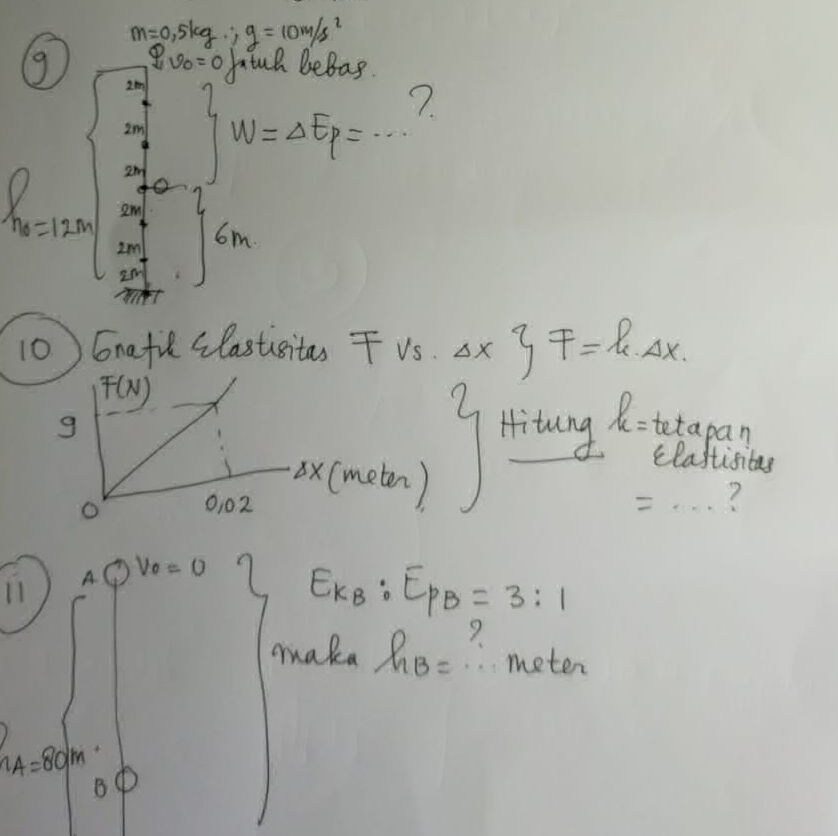 m=0,5kg.; g=10m/s²
9
v₀=0 jatuh bebas.
2m
2m
2m
2m
2m
2m
W=ΔEp=...?
h₀=12m
6m.
10 Grafik Elastisitas F vs. Δx } F=k.Δx.
F(N)
9
0
0,02
Δx (meter)
Hitung k=tetapan
Elastisitas
= ....?
11
A
V₀=0
EKB : EpB = 3:1
maka hB= ...? meter
hA=80m
B